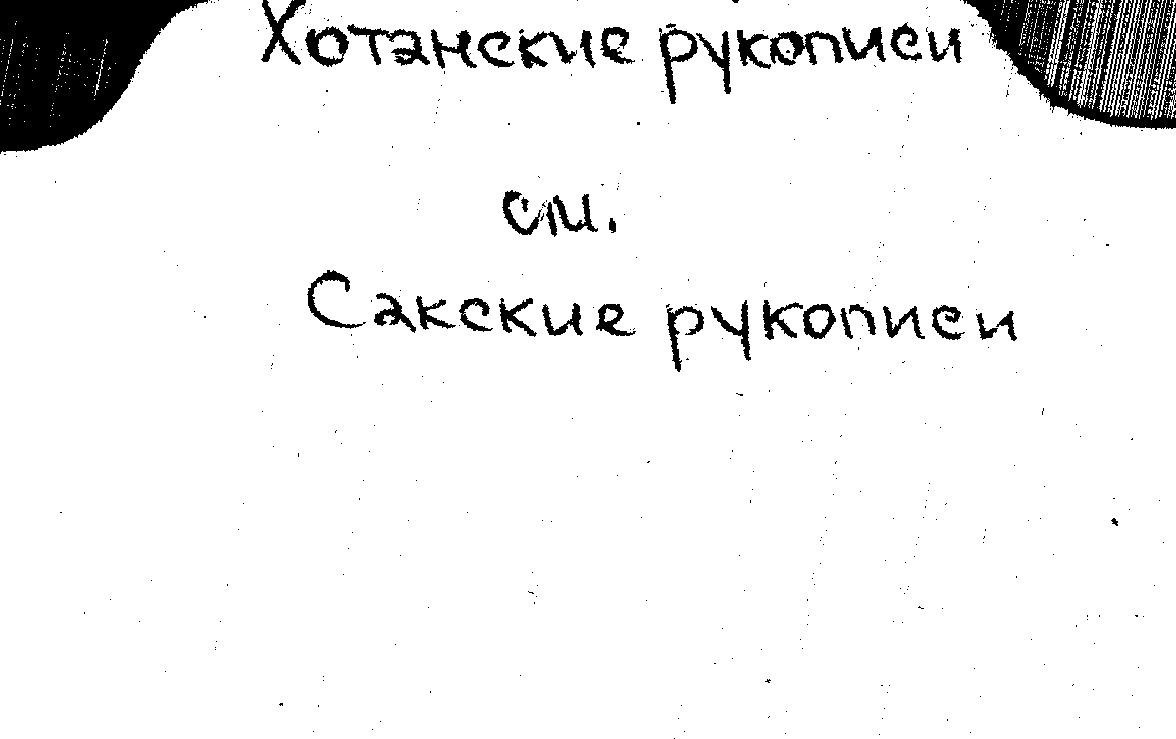 Хотанские рукописи
см.
Сакские рукописи